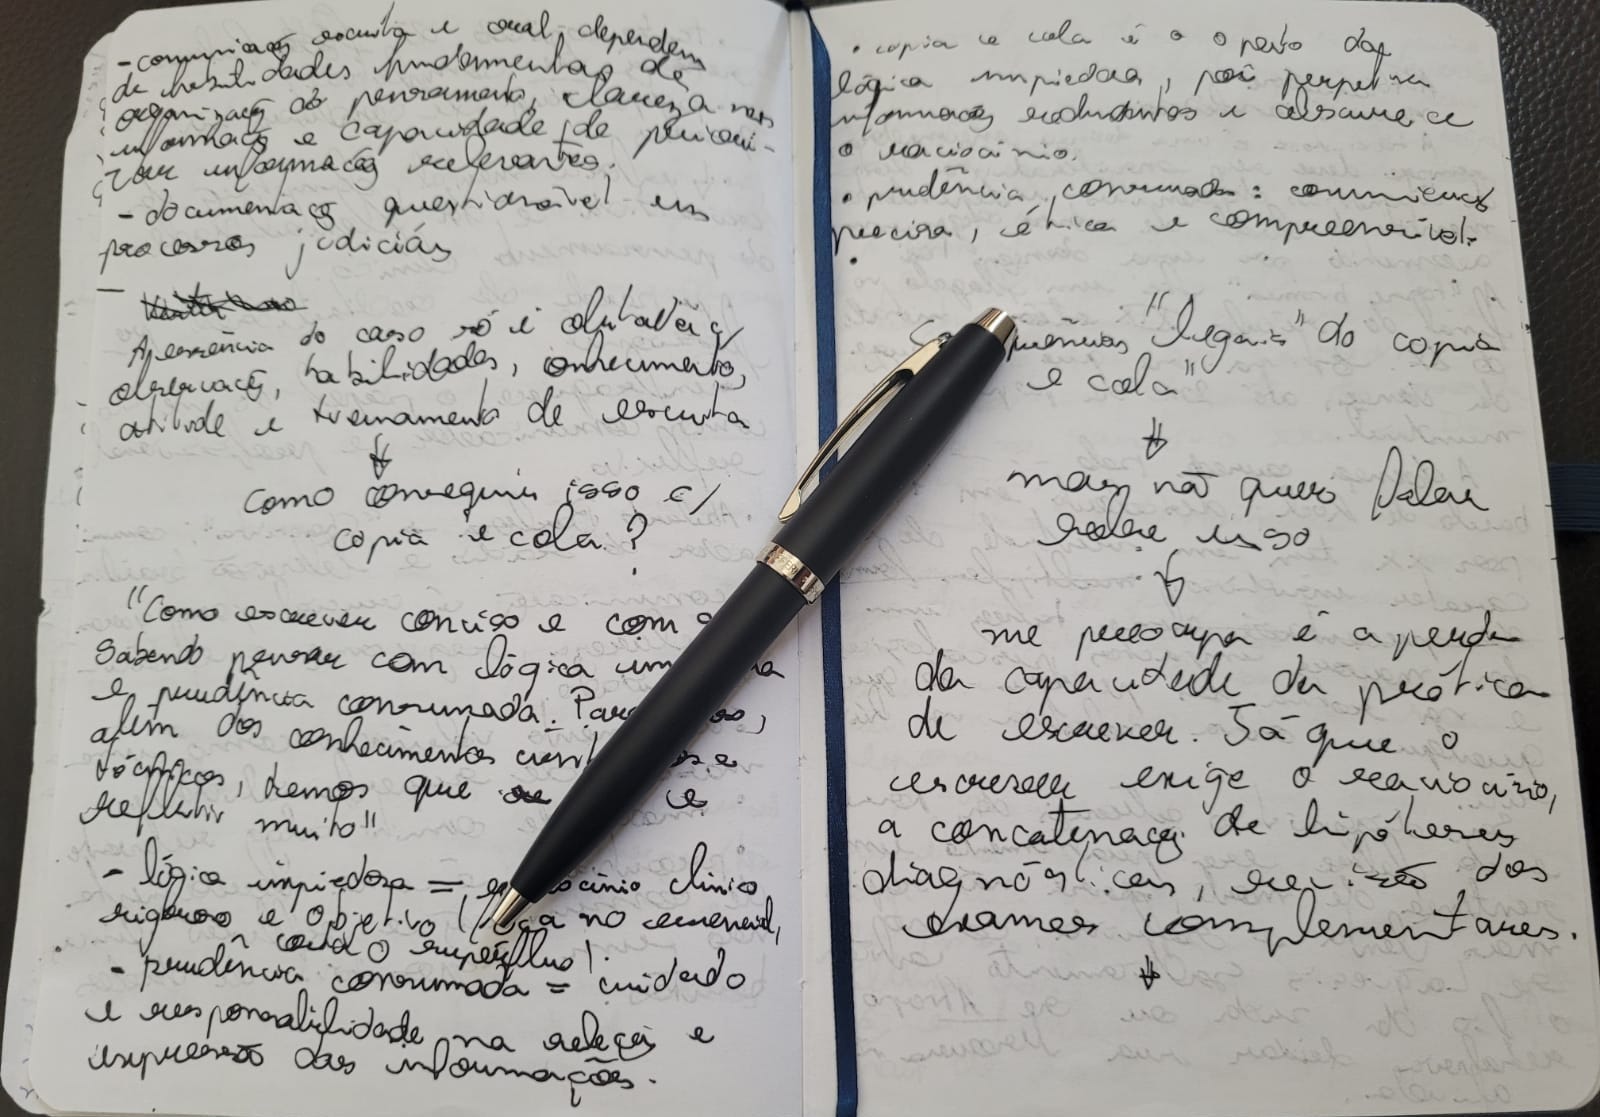 - comunicação escrita e oral dependem
de habilidades fundamentais de
organização do pensamento, clareza nas
informaçõ e capacidade de priori-
zar informações relevantes.
- documentação questionável em
processos judiciais
A essência do caso só é obtida c/
observação, habilidades, conhecimento,
atitude e treinamento de escrita
como conseguir isso c/
copia e cola?
"Como escrever conciso e com
Sabendo pensar com lógica
e prudência consumada. Para
além dos conhecimentos
temos que e
refletir muito"
- lógica impiedosa = clínico
rigoroso e objetivo no essencial,
o supérfluo)
- prudência consumada = cuidado
e responsabilidade na seleção e
expressão das informações.
• copia e cola é o oposto da
lógica impiedosa, pois perpetua
informações redundantes e obscurece
o raciocínio.
• prudência consumada: comunicação
precisa, ética e compreensível.
"legais" do copia
e cola"
mas não quero falar
sobre isso
me preocupa é a perda
da capacidade da prática
de escrever. Já que o
escrever exige o raciocínio,
a concatenação de hipóteses
diagnósticas, dos
exames complementares.